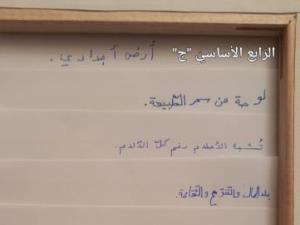 الرابع الأساسي "ج"
أرض أجدادي.
لوحة من سحر الطبيعة.
تُشبه الأحلام رغم كلّ الآلام.
بلد الجمال والتنوّع والثقافة.